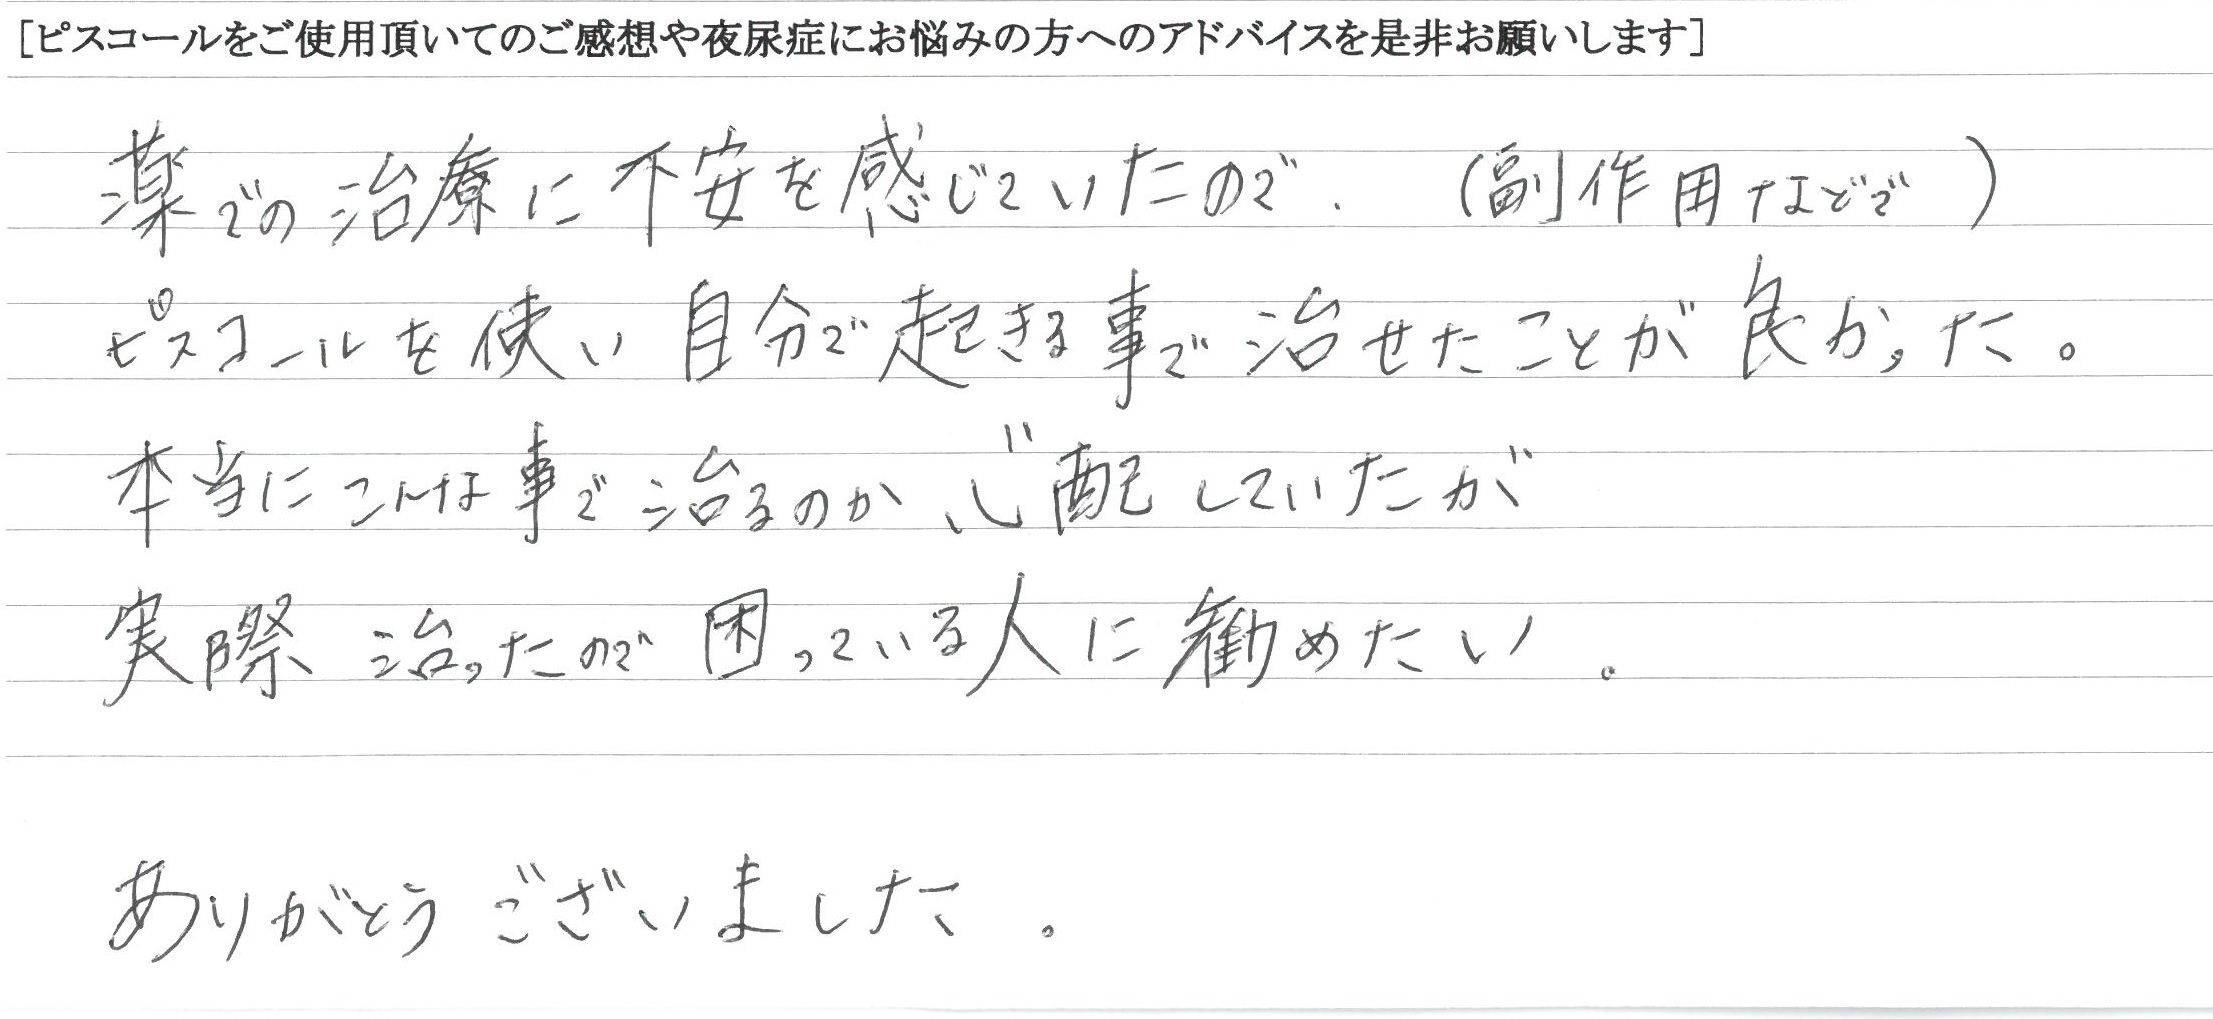 [ピスコールをご使用頂いてのご感想や夜尿症にお悩みの方へのアドバイスを是非お願いします]
薬での治療に不安を感じていたので、(副作用などで)
ピスコールを使い自分で起きる事で治せたことが良かった。
本当にこんな事で治るのか心配していたが
実際治ったので困っている人に勧めたい。
ありがとうございました。